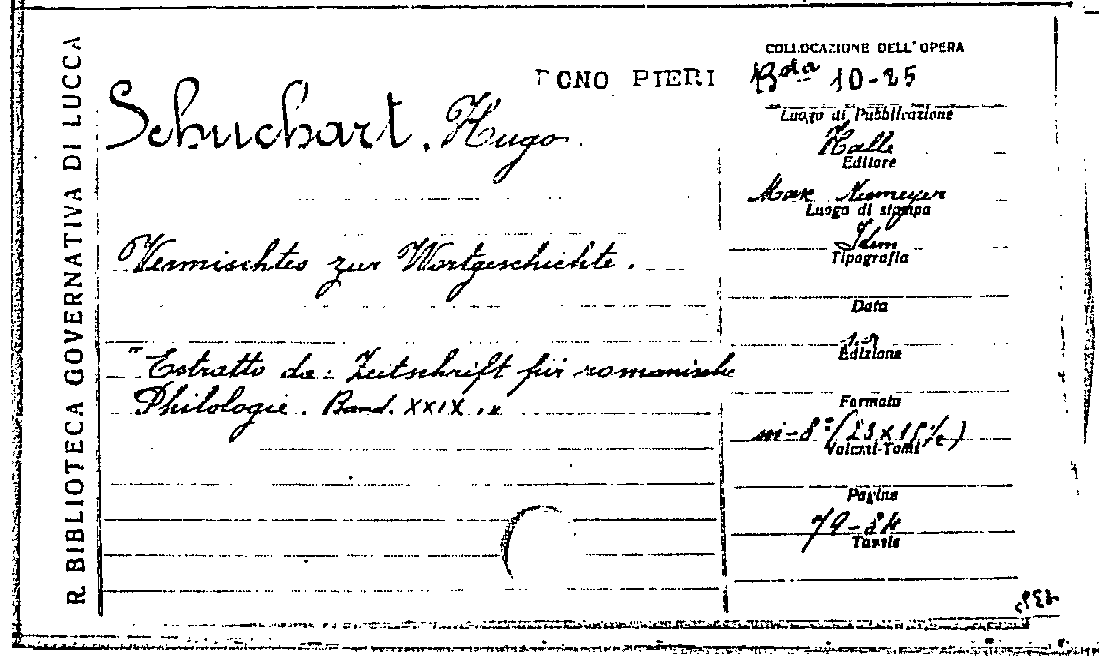 R. BIBLIOTECA GOVERNATIVA DI LUCCA
DONO PIERI
Schuchart, Hugo.
Vermischtes zur Wortgeschichte.
"Estratto da: Zeitschrift für romanische
Philologie. Band. XXIX."
COLLOCAZIONE DELL'OPERA
Bta 10-25
Luogo di Pubblicazione
Halle
Editore
Max Niemeyer
Luogo di stampa
Idem
Tipografia
Data
Edizione
Formato
in-8° (23 x 15 1/2)
Volumi-Tomi
Pagine
79-84
Tavole